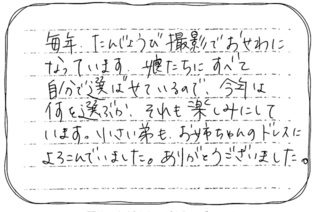 毎年、たんじょうび撮影でおせわに
なっています。娘たちにすべて
自分で選ばせているので、今年は
何を選ぶか、それも楽しみにして
います。小さい弟も、お姉ちゃんのドレスに
よろこんでいました。ありがとうございました。